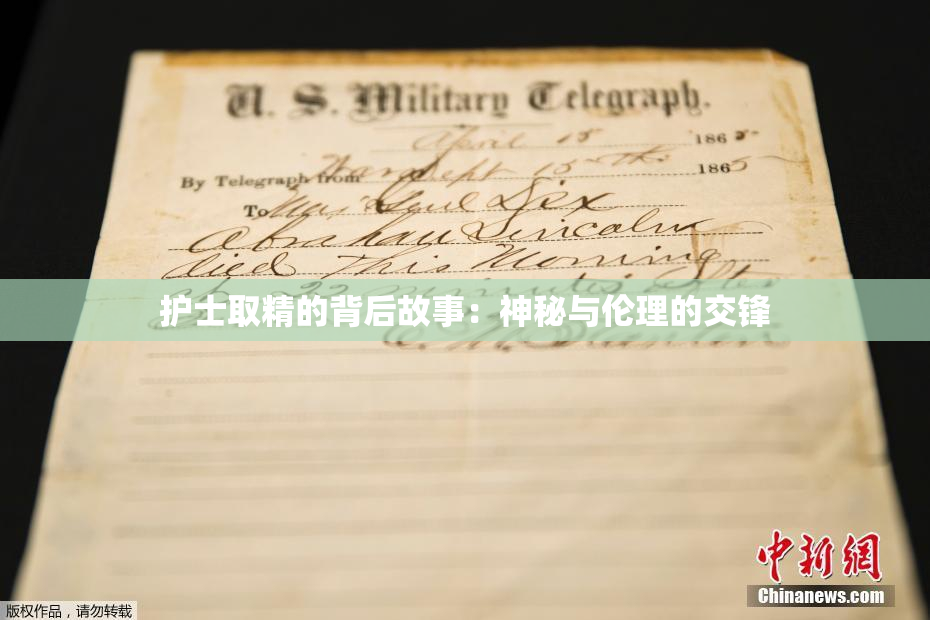 U. S. Military Telegraph.
April 15 1865
By Telegraph from War Dept 15th 1865
To Maj Genl Dix
Abraham Lincoln
died This Morning
at 22 minutes after
护士取精的背后故事：神秘与伦理的交锋
中新网
Chinanews.com
版权作品，请勿转载